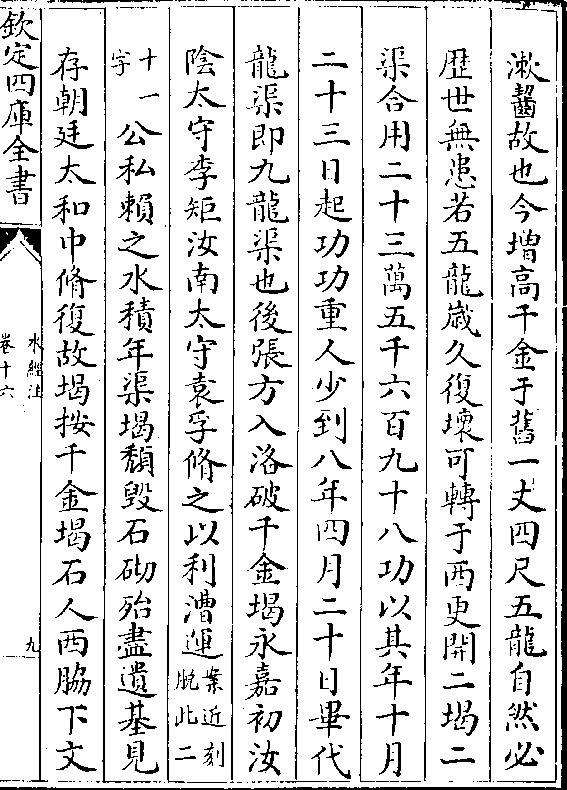 漱齧故也今増高千金于舊一丈四尺五龍自然必
歴世無患若五龍嵗久復壞可轉于西更開二堨二
渠合用二十三萬五千六百九十八功以其年十月
二十三日起功功重人少到八年四月二十日畢代
龍渠即九龍渠也後張方入洛破千金堨永嘉初汝
隂太守李矩汝南太守袁孚脩之以利漕運案近刻脫此二
十一字公私賴之水積年渠堨頽毀石砌殆盡遺基見
存朝廷太和中脩復故堨按千金堨石人西脇下文
欽定四庫全書
水經注
卷十六
九